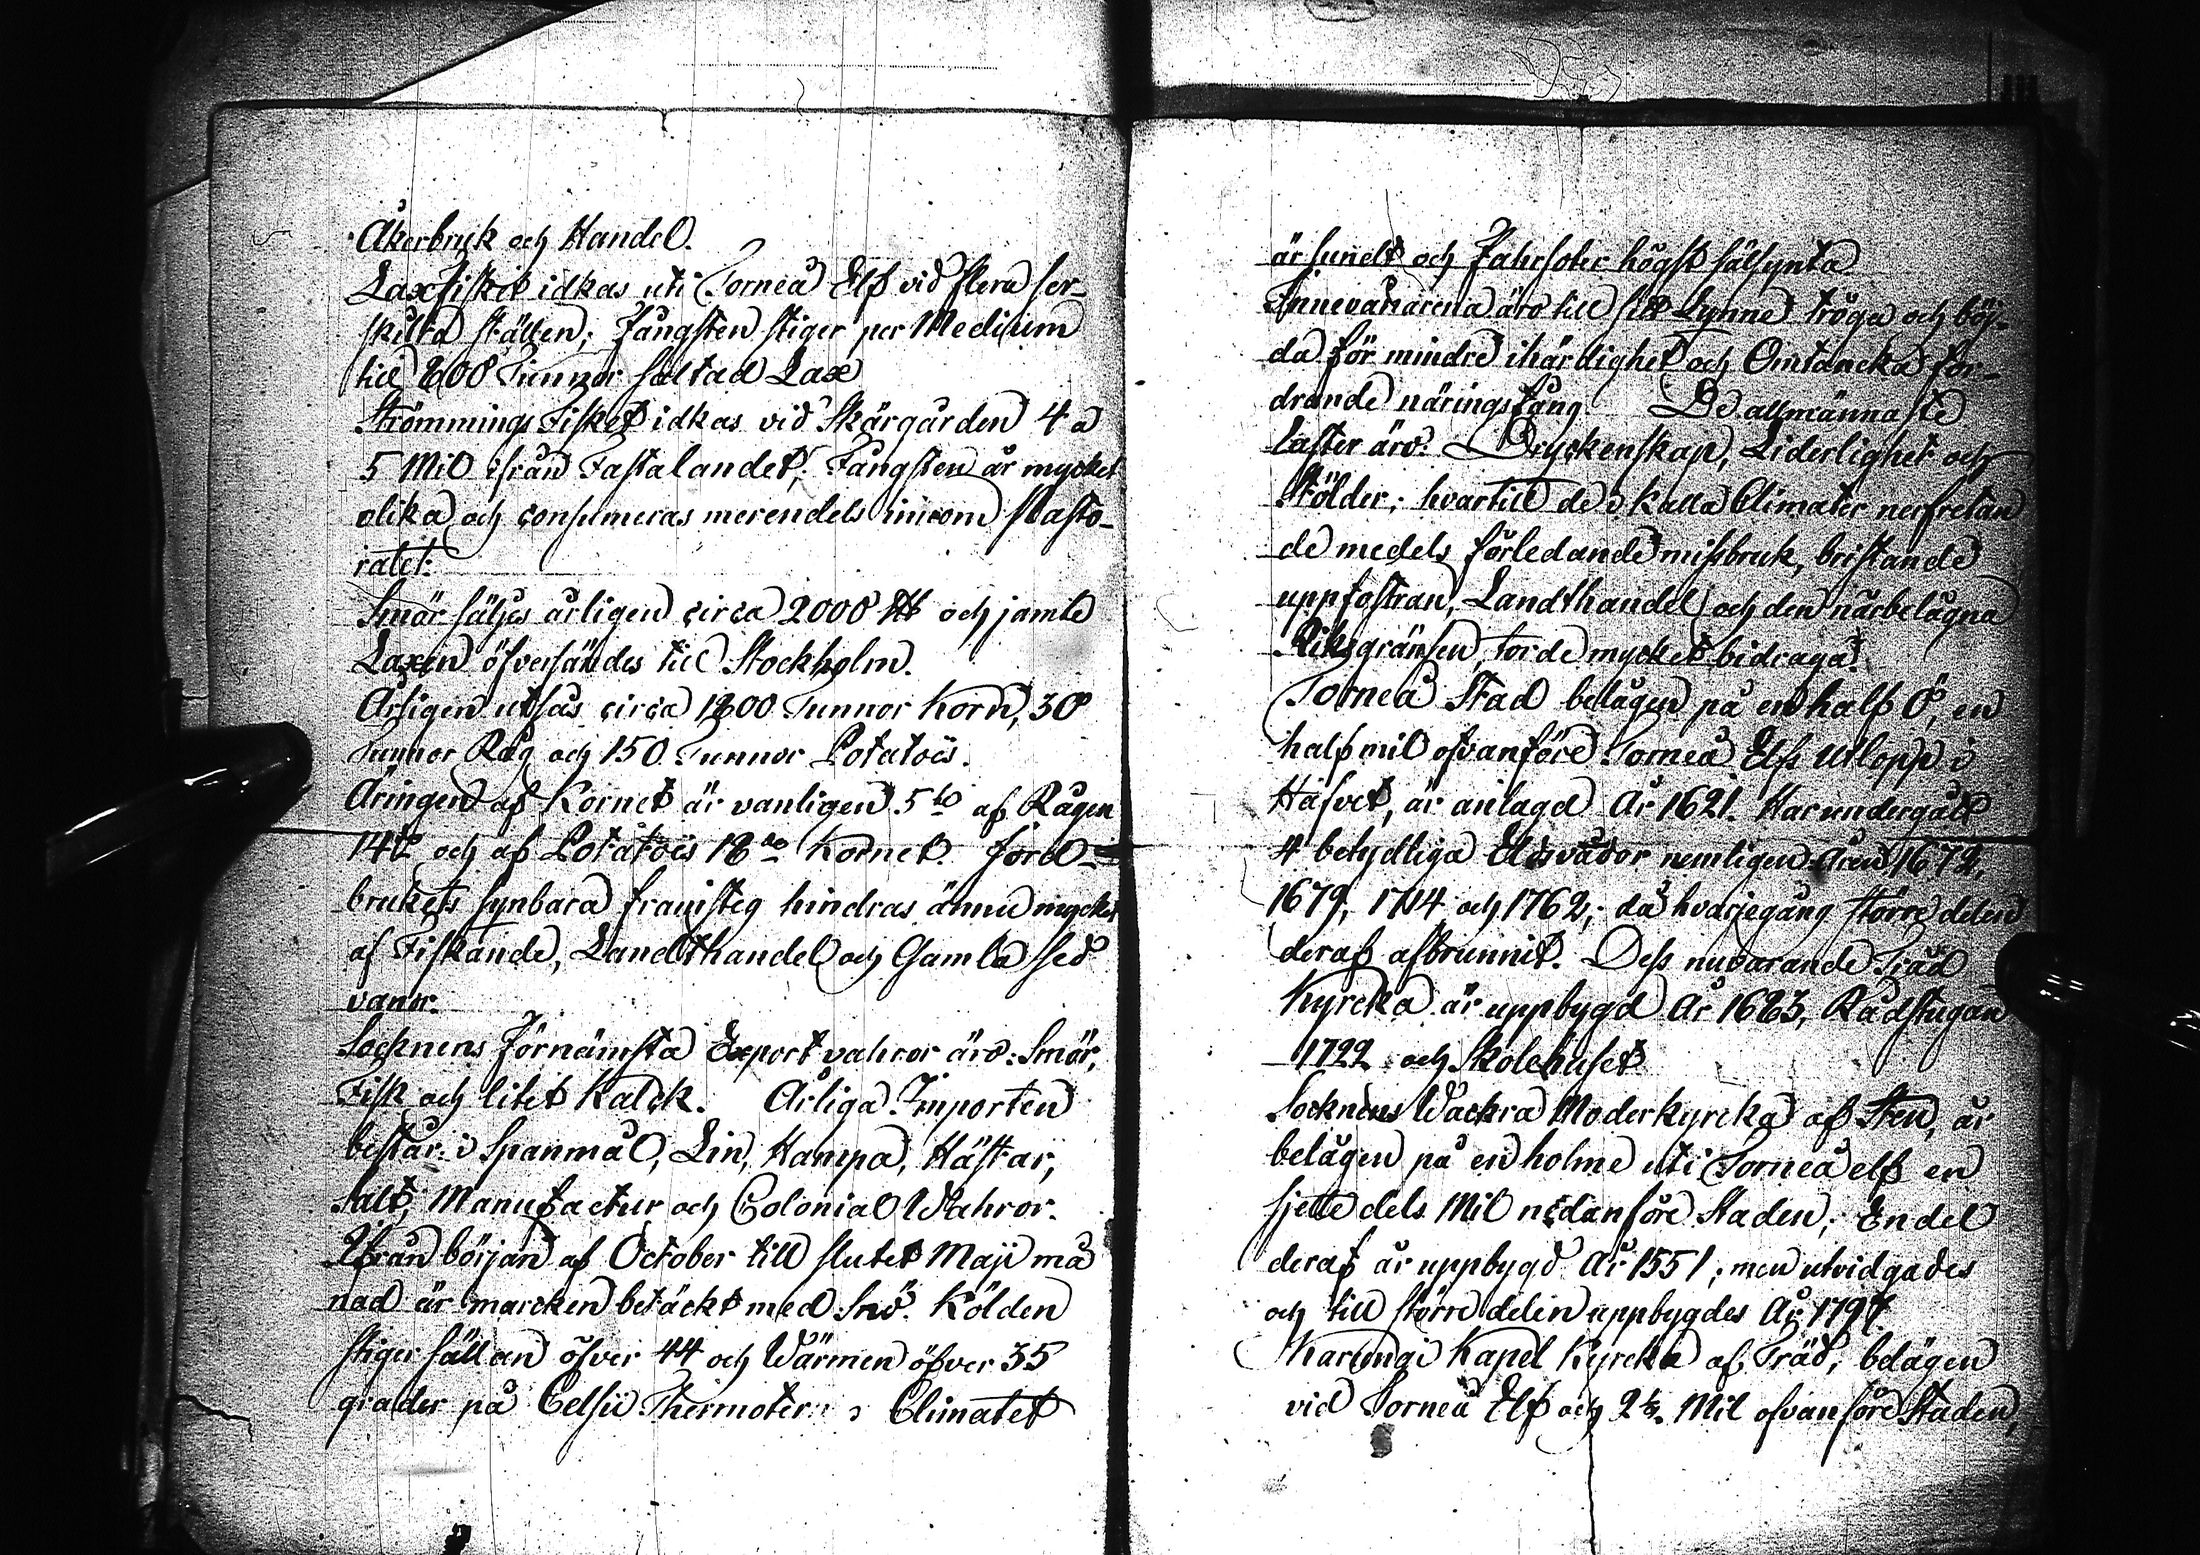 Åkerbruk och Handel.
Laxfisket idkas uti Torneå Elf vid flera ser-
skilta ställen; Fångsten stiger per Medium
till 200 Tunnor saltad Lax
Strömmings Fisket idkas vid Skärgården 4 a
5 Mil ifrån Fastalandet; Fångsten är mycket
olika och consumeras merendels innom Pasto-
ratet.
Smör säljes årligen circa 2000 och jamte
Laxen öfversändes till Stockholm.
Årligen utsås circa 1200 Tunnor Korn, 30
Tunnor Råg och 150 Tunnor Potatoës.
Äringen af Kornet är vanligen 5 af Rågen
14 och af Potatoës 18 Kornet. Jord-
brukets synbara framsteg hindras ännu mycket
af Fiskande, Landthandel och Gamla sed
vanor.
Socknens Förnämsta Export vahror äro: Smör,
Fisk och litet Kalck. Årliga Importen
består i Spanmål, Lin, Hampa, Hästar,
Salt, Manufactur och Colonial Wahror.
Ifrån början af October till slutet Maji må
nad är marcken betäckt med Snö. Kölden
stiger sällan öfver 44 och Wärmen öfver 35
grader på Celsii Thermoter. Climatet
är sundt och Fahrsoter högst sälsynta
Innevånarena äro till sitt Lynne tröga och böj-
da för mindre ihärdighet och Omtancka for-
drande näringsfång. De allmännaste
laster äro: Dryckenskap, Liderlighet och
Stölder; hvartill de i kalla Climater nerfretan
de medels förledande missbruk, bristande
uppfostran, Landthandel och den närbelägna
Riksgränsen torde mycket bidraga.
Torneå Stad belägen på en half Ö, en
half mil ofvanföre Torneå Elfs utlopp i
Hafvet, är anlagd År 1621. Har undergått
4 betydliga Eldsvådor nemligen Åren 1672,
1679, 1714 och 1762; då hvarjegång större delen
deraf afbrunnit. Dess nuvarande Träd
Kyrcka är uppbygd År 1683, Rådstugan
1722 och Skolehuset
Socknens Wackra Moderkyrcka af Sten, är
belägen på en holme uti Torneå elf en
sjette dels Mil nedanföre Staden; En del
deraf är uppbygd År 1551; men utvidgades
och till större delen uppbygdes År 1797.
Karungi Kapel Kyrcka af Träd, belägen
vid Torneå Elf och 2 1/2 Mil ofvanföre Staden,